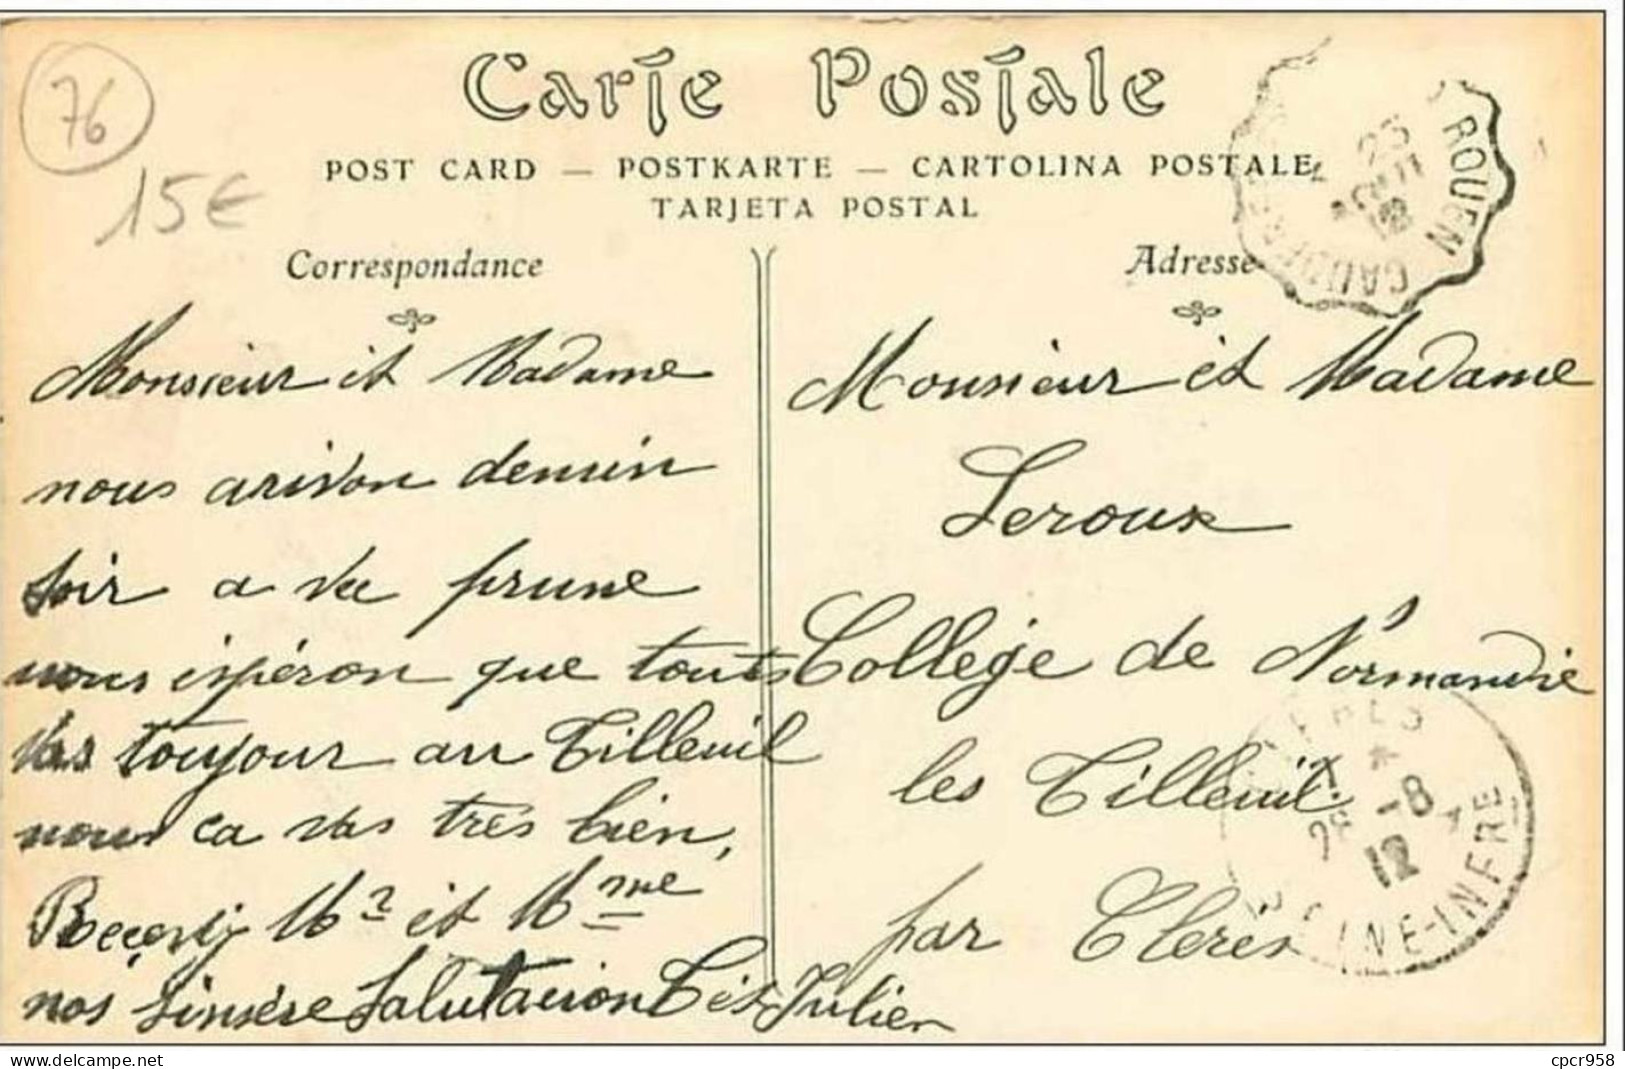 Carte Postale
POST CARD — POSTKARTE — CARTOLINA POSTALE
TARJETA POSTAL
76
15€
Correspondance
Monsieur et Madame
nous arivon demin
soir a vec prune
nous ispéron que touts
vas toujour au Tilleuil
nous ca vas tres bien,
Recevez Mr et Mme
nos sinsère Salutacion Cés Julien
Adresse
Monsieur et Madame
Leroux
Collège de Normandie
les Tilleuil
par Clerès
ROUEN
23
12
-8
12
SEINE-INFRE
www.delcampe.net
cpcr958